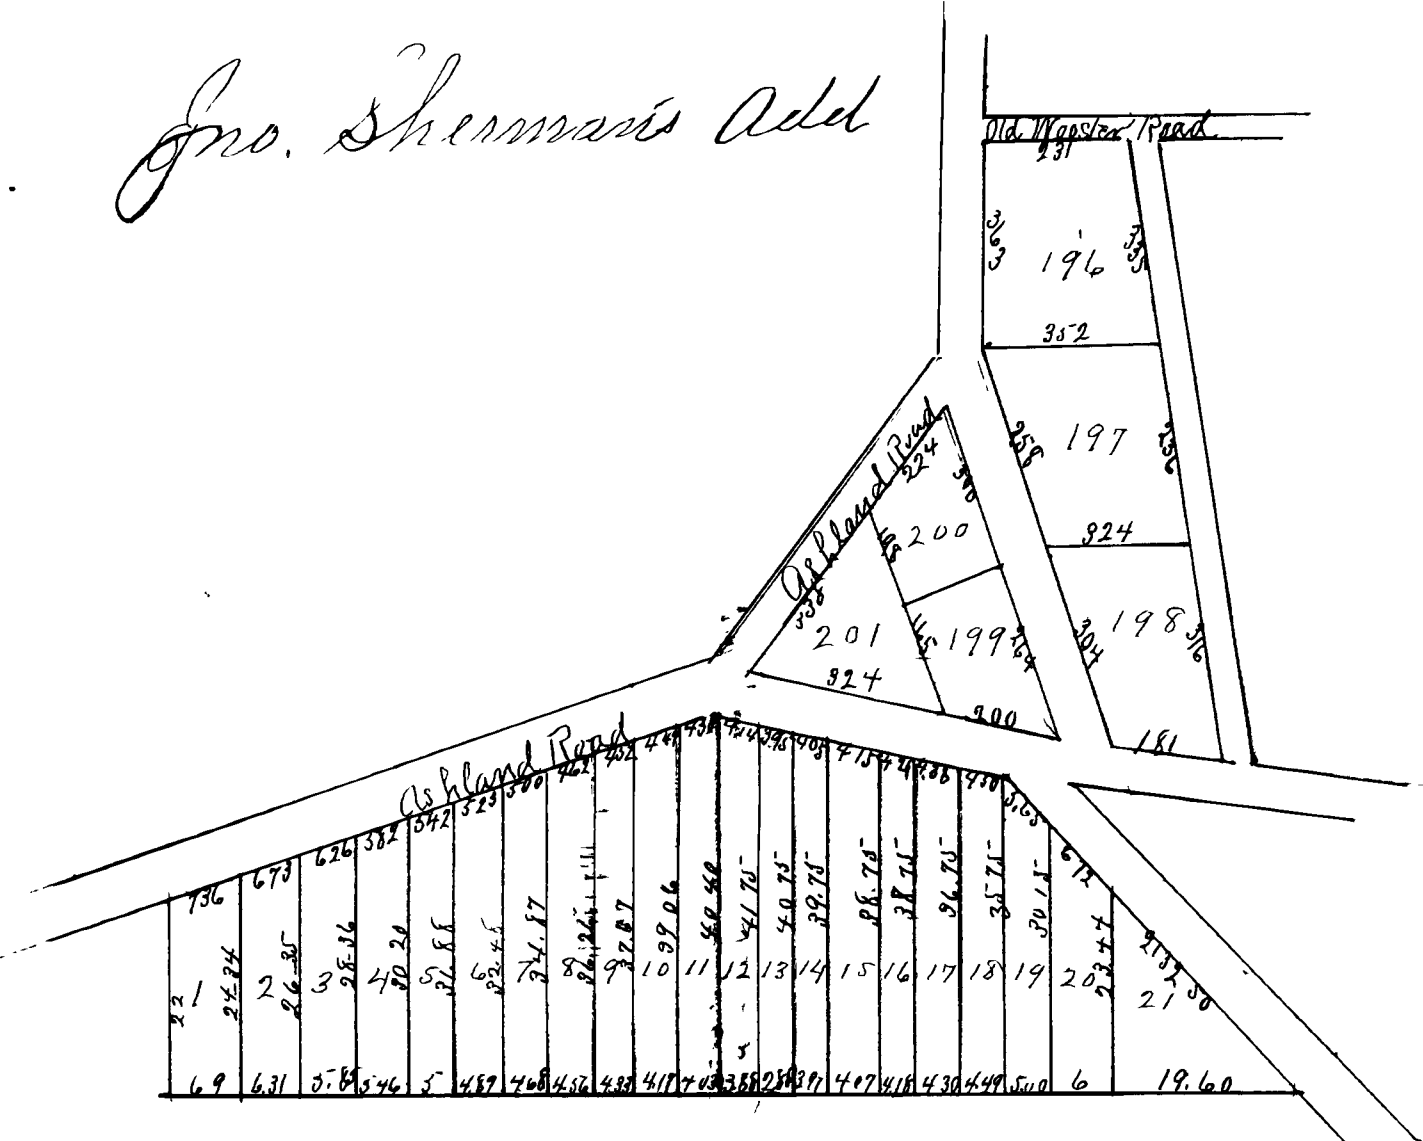 Jno. Sherman's Add
Old Wooster Road
231
363
196
335
352
258
197
236
324
Ashland Road
224
300
198
200
338
201
165
199
264
304
198
316
324
200
181
Ashland Road
736 673 626 582 542 523 500 462 452 441 431 414 395 405 415 421 436 450 5.65 672 2132 50
22 24-34 26-35 28-36 30 20 31.88 32.45 34.87 36.26 37.87 39 06 40 40 41 75 40 75 39.75 38.75 38 75 36.75 35 75 30 15 23 47
1 2 3 4 5 6 7 8 9 10 11 12 13 14 15 16 17 18 19 20 21
6 9 6.31 5.85 5.46 5 4.89 4.68 4.56 4.33 4.19 4.03 3.88 2.88 3.97 4.07 4.18 4.30 4.49 5.00 6 19.60